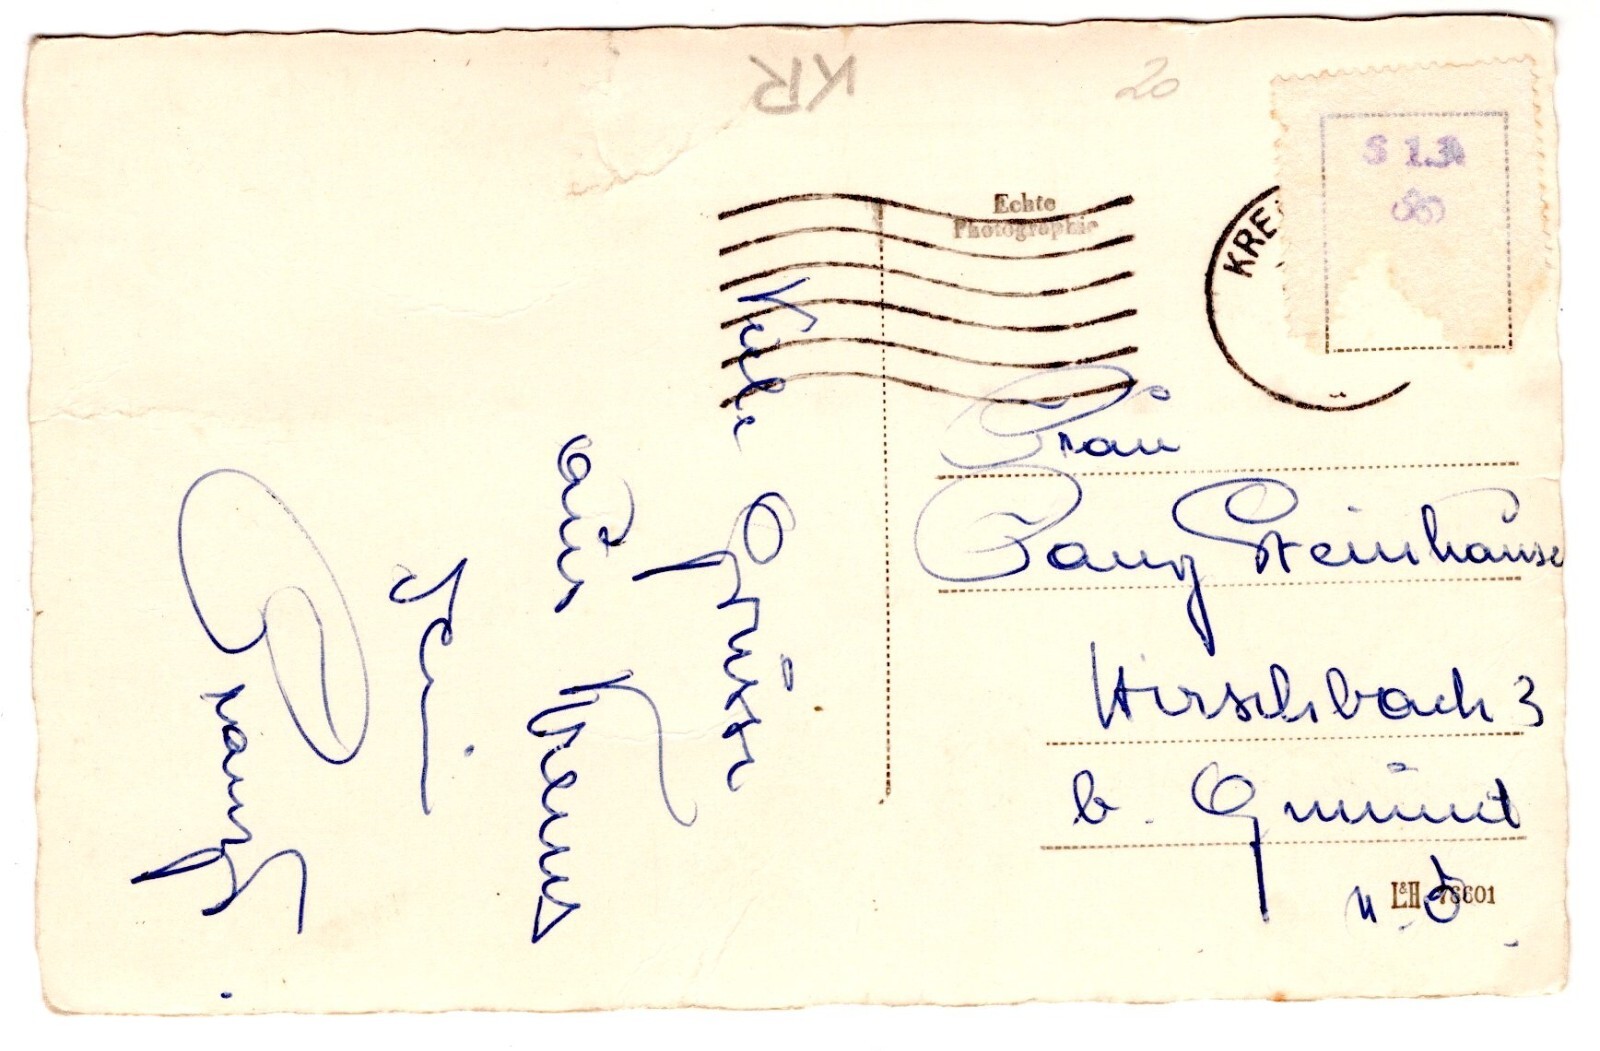 KR
20
S 1.30
Echte
Photographie
KRE
Viele Grüsse
aus Krems
Dein
Franz
Frau
Fanny Steinhause
Hirschbach 3
b. Gmünd
N.Ö
L&H 76601